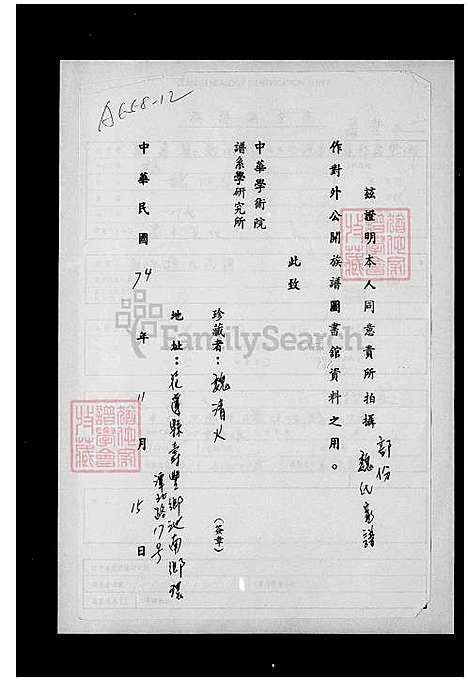 A658-12
茲證明本人同意貴所拍攝 部份
魏氏族譜
作對外公開族譜圖書館資料之用。
此致
中華學術院
譜系學研究所
珍藏者：魏清火 （簽章）
地址：花蓮縣壽豐鄉池南鄉環
潭北路17号
中華民國74年11月15日
FamilySearch